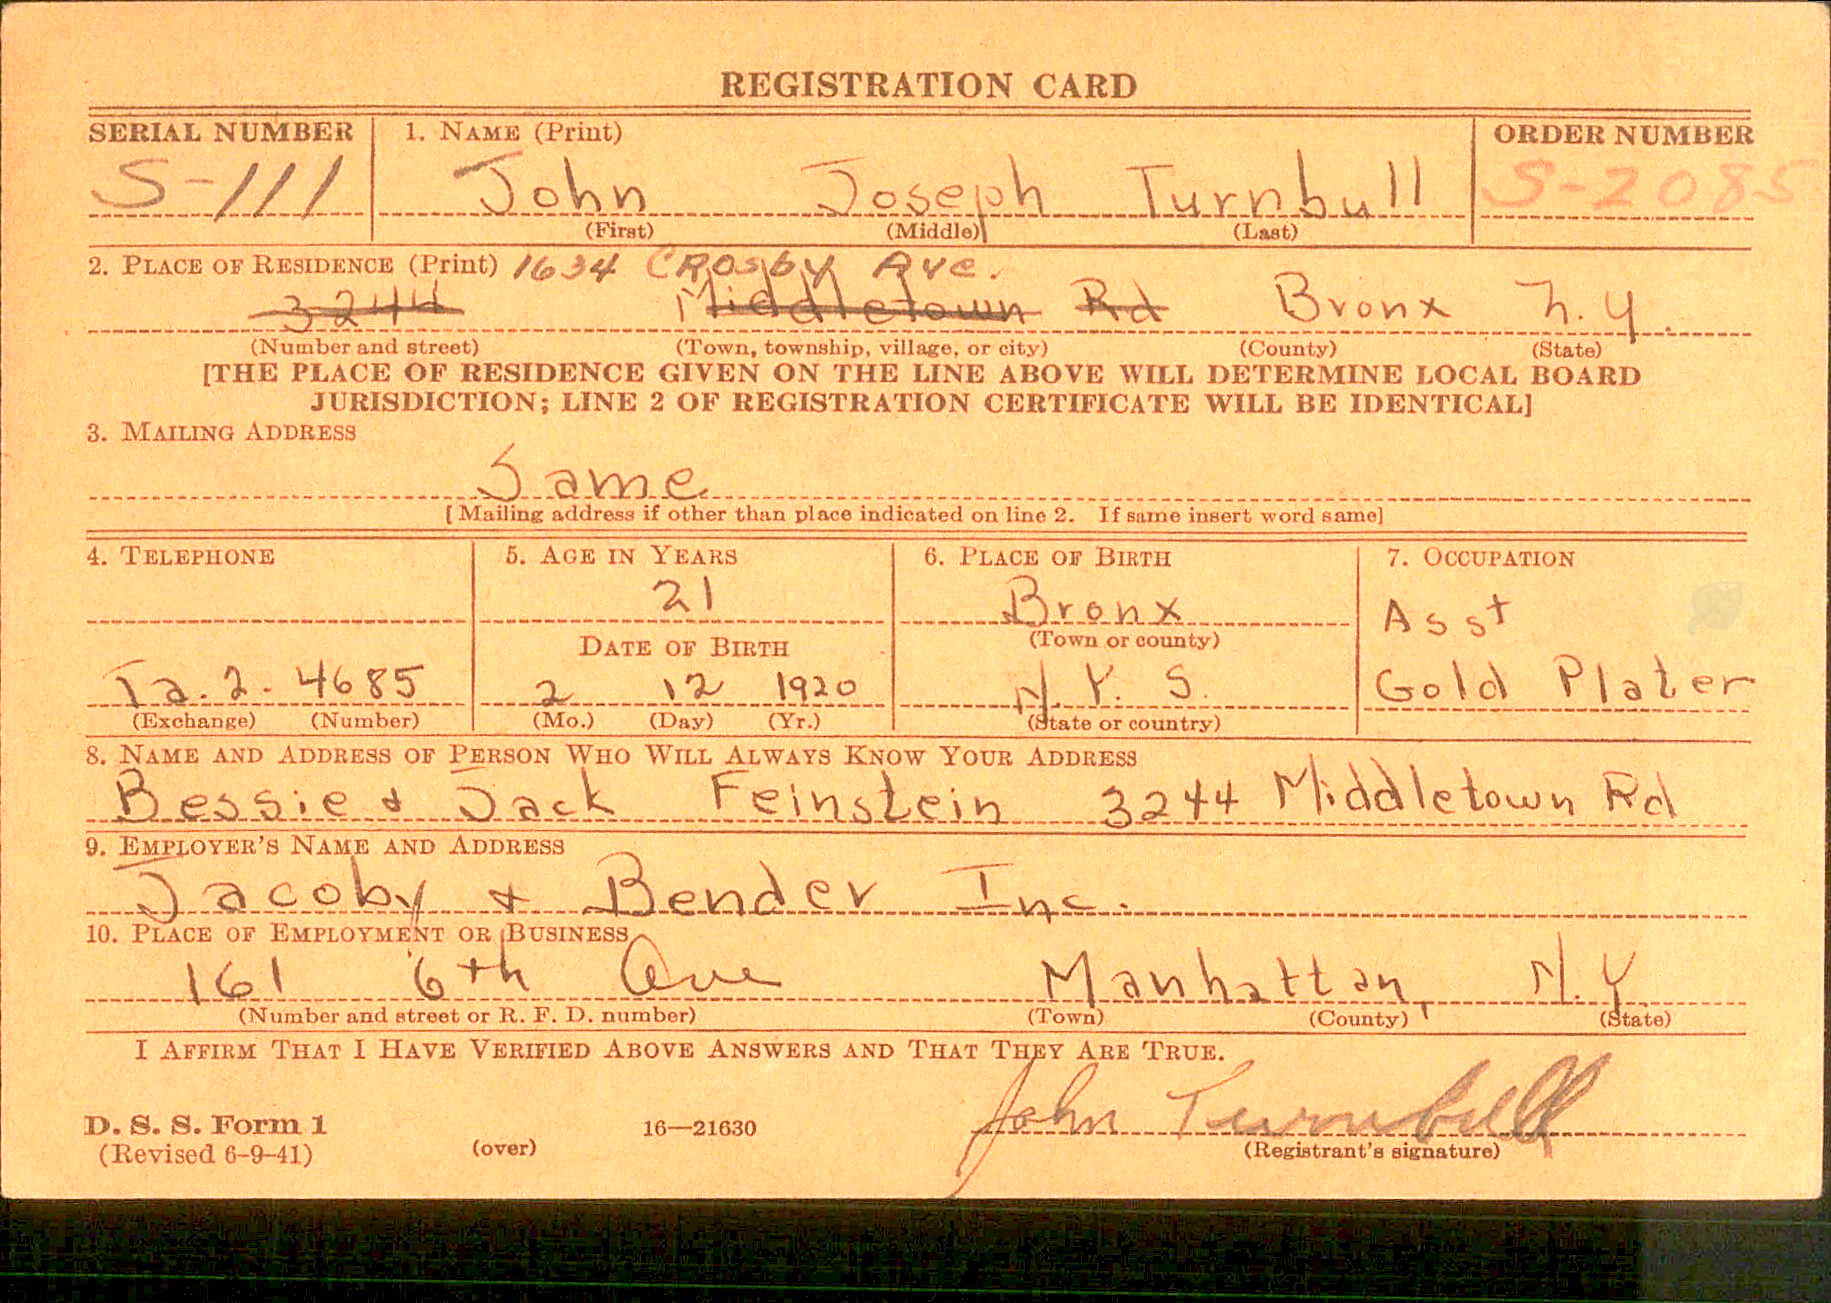 REGISTRATION CARD
SERIAL NUMBER 1. NAME (Print) ORDER NUMBER
S-111 John Joseph Turnbull S-2085
(First) (Middle) (Last)
2. PLACE OF RESIDENCE (Print) 1634 CROSby Ave.
3244 Middletown Rd Bronx N.Y.
(Number and street) (Town, township, village, or city) (County) (State)
[THE PLACE OF RESIDENCE GIVEN ON THE LINE ABOVE WILL DETERMINE LOCAL BOARD
JURISDICTION; LINE 2 OF REGISTRATION CERTIFICATE WILL BE IDENTICAL]
3. MAILING ADDRESS
Same
[Mailing address if other than place indicated on line 2. If same insert word same]
4. TELEPHONE 5. AGE IN YEARS 6. PLACE OF BIRTH 7. OCCUPATION
21 Bronx Asst
DATE OF BIRTH (Town or county)
Ta. 2. 4685 2 12 1920 N.Y.S. Gold Plater
(Exchange) (Number) (Mo.) (Day) (Yr.) (State or country)
8. NAME AND ADDRESS OF PERSON WHO WILL ALWAYS KNOW YOUR ADDRESS
Bessie & Jack Feinstein 3244 Middletown Rd
9. EMPLOYER'S NAME AND ADDRESS
Jacoby & Bender Inc.
10. PLACE OF EMPLOYMENT OR BUSINESS
161 6th Ave Manhattan, N.Y.
(Number and street or R. F. D. number) (Town) (County) (State)
I AFFIRM THAT I HAVE VERIFIED ABOVE ANSWERS AND THAT THEY ARE TRUE.
John Turnbull
D. S. S. Form 1 16—21630
(Revised 6-9-41) (over) (Registrant's signature)